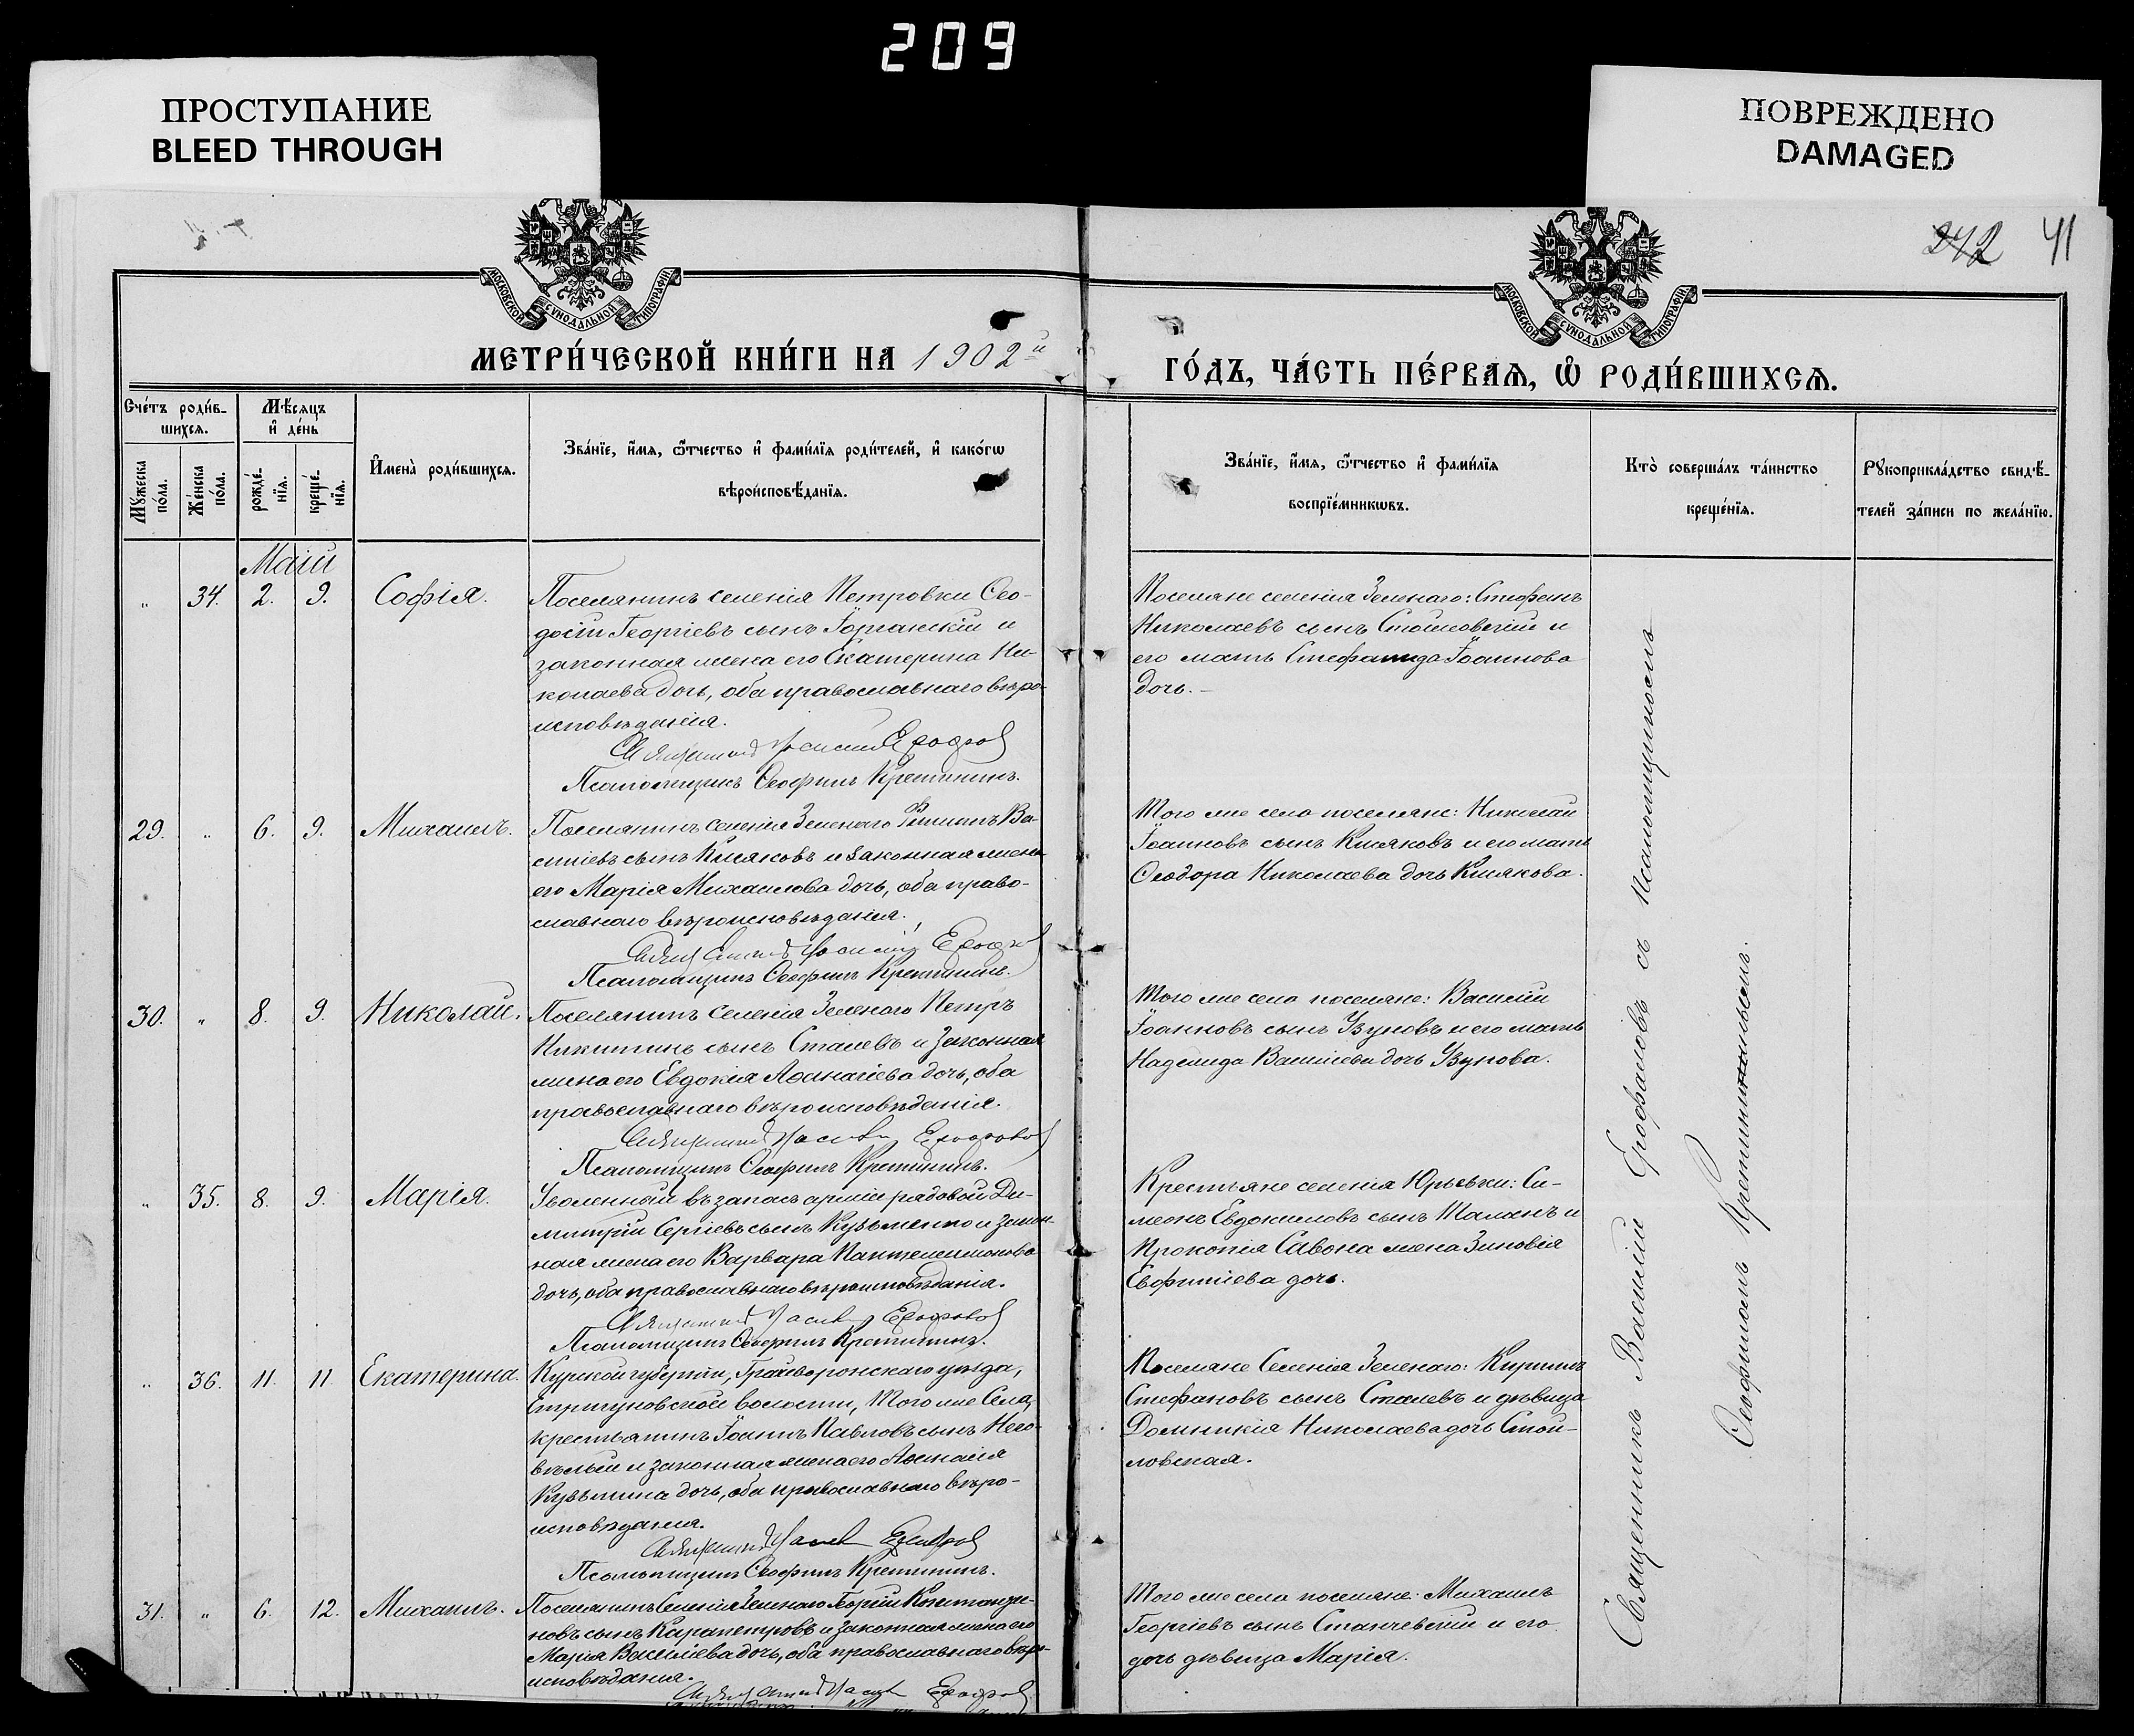 209
ПРОСТУПАНИЕ
BLEED THROUGH
ПОВРЕЖДЕНО
DAMAGED
242 41
МОСКОВСКОЙ СѴНОДАЛЬНОЙ ТИПОГРАФІИ
МОСКОВСКОЙ СѴНОДАЛЬНОЙ ТИПОГРАФІИ
МЕТРИ́ЧЕСКОЙ КНИ́ГИ НА 1902й
ГО́ДЪ, ЧА́СТЬ ПЕ́РВАѦ, Ѽ РОДИ́ВШИХСѦ.
Счéтъ роди́в-
шихсѧ.
Мꙋ́жеска
по́ла.
Же́нска
по́ла.
Мѣ́сѧцъ
и҆ де́нь
рожде́-
нїѧ.
креще́-
нїѧ.
И҆мена̀ роди́вшихсѧ.
Зва́нїе, и҆́мѧ, ѻ҆́тчество и҆ фами́лїѧ роди́телей, и҆ како́гѡ
вѣроисповѣ́данїѧ.
Зва́нїе, и҆́мѧ, ѻ҆́тчество и҆ фами́лїѧ
воспрїе́мникѡвъ.
Кто̀ соверша́лъ та́инство
креще́нїѧ.
Рꙋкоприкла́дство свидѣ́-
телей за́писи по жела́нїю.
Маій
" 34. 2. 9. Софія.
Поселянинъ селенія Петровки Ѳео-
досій Георгіевъ сынъ Горганскій и
законная жена его Екатерина Ни-
колаева дочь, оба православнаго вѣро-
исповѣданія.
Священникъ Василій Ерофалов
Псаломщикъ Ѳеофилъ Кретининъ.
Поселяне селенія Зеленаго: Стефанъ
Николаевъ сынъ Стойловскій и
его мать Стефанида Іоаннова
дочь. –
29. " 6. 9. Михаилъ.
Поселянинъ селенія Зеленаго Филиппъ Ва-
силіевъ сынъ Кисяковъ и законная жена
его Марія Михаилова дочь, оба право-
славнаго вѣроисповѣданія.
Священникъ Василій Ерофалов
Псаломщикъ Ѳеофилъ Кретининъ.
Того же села поселяне: Николай
Іоанновъ сынъ Кисяковъ и его мать
Ѳеодора Николаева дочь Кисякова.
30. " 8. 9. Николай.
Поселянинъ селенія Зеленаго Петръ
Никитинъ сынъ Сталевъ и законная
жена его Евдокія Аѳанасіева дочь, оба
православнаго вѣроисповѣданія.
Священникъ Василій Ерофалов
Псаломщикъ Ѳеофилъ Кретининъ.
Того же села поселяне: Василій
Іоанновъ сынъ Узуновъ и его мать
Надежда Василіева дочь Узунова.
" 35. 8. 9. Марія.
Уволенный въ запасъ арміи рядовой Ди-
митрій Сергіевъ сынъ Кузьменко и закон-
ная жена его Варвара Пантелеимонова
дочь, оба православнаго вѣроисповѣданія.
Священникъ Василій Ерофалов
Псаломщикъ Ѳеофилъ Кретининъ.
Крестьяне селенія Юрьевки: Си-
меонъ Евдокимовъ сынъ Шаланъ и
Прокопія Савона жена Зиновія
Евфиміева дочь.
" 36. 11. 11. Екатерина.
Курской губерніи, Грайворонскаго уѣзда,
Стригуновской волости, того же села,
крестьянинъ Іоаннъ Павловъ сынъ
и законная жена его
Кузьмина дочь, оба православнаго вѣро-
исповѣданія.
Священникъ Василій Ерофалов
Псаломщикъ Ѳеофилъ Кретининъ.
Поселяне селенія Зеленаго: Кириллъ
Стефановъ сынъ Сталевъ и дѣвица
Домникія Николаева дочь Стой-
ловская.
31. " 6. 12. Михаилъ.
Поселянинъ селенія Зеленаго Георгій Константи-
новъ сынъ Карапетровъ и законная жена его
Марія Василіева дочь, оба православнаго вѣро-
исповѣданія.
Священникъ Василій Ерофалов
Того же села поселяне: Михаилъ
Георгіевъ сынъ Станчевскій и его
дочь дѣвица Марія.
Священникъ Василій Ерофаловъ съ псаломщикомъ
Ѳеофиломъ Кретининымъ.